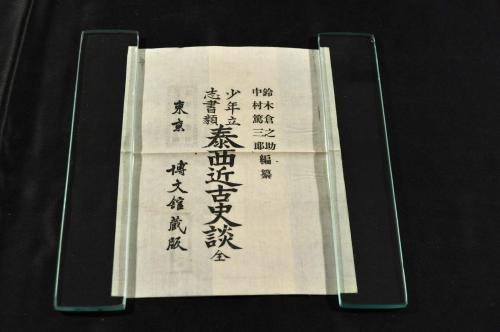 鈴木倉之助
中村篤三郎編纂
少年立
志書類
泰西近古史談 全
東京 博文館蔵版